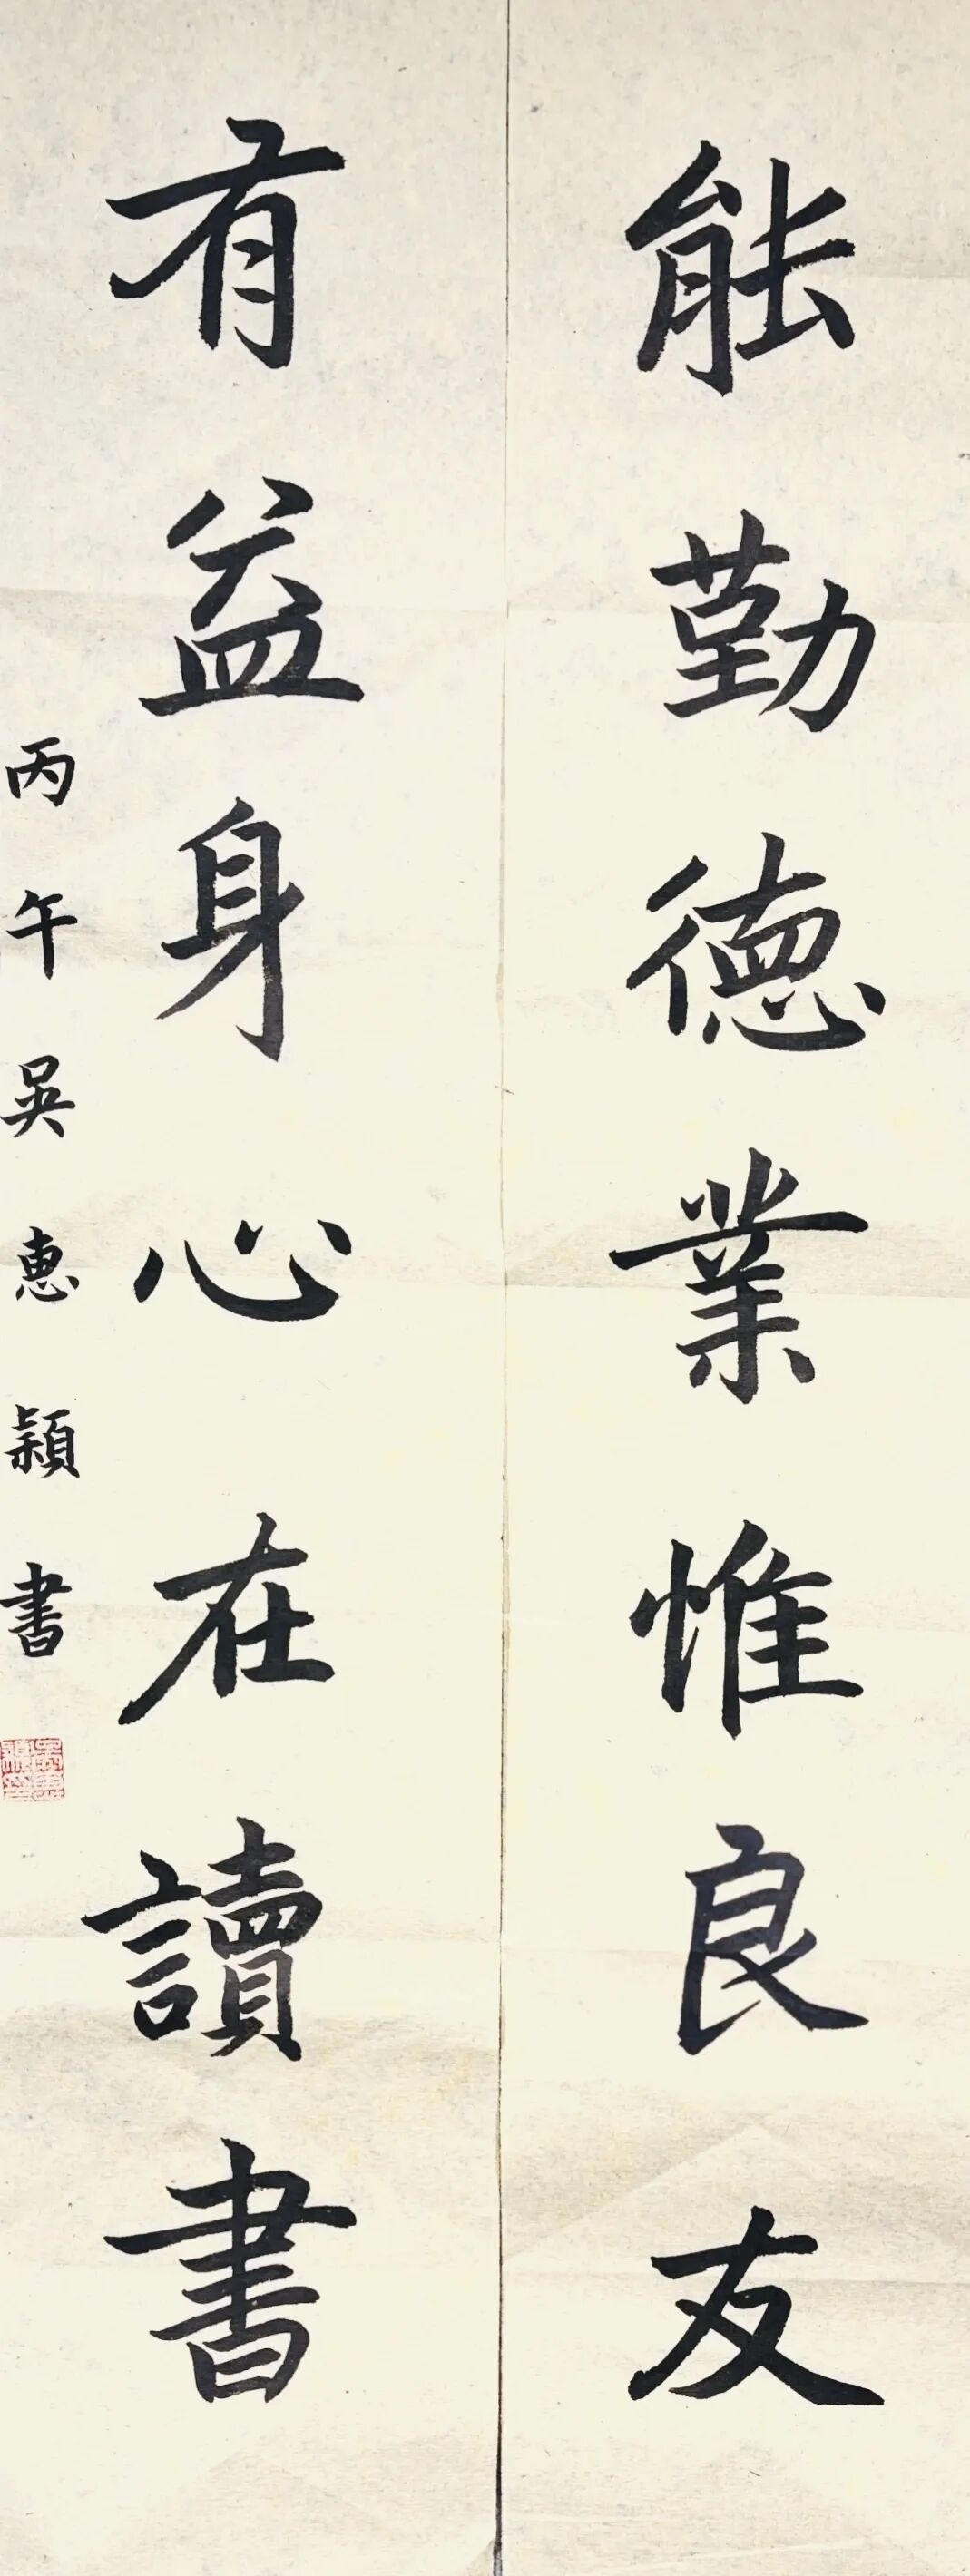 能勤德業惟良友
有益身心在讀書
丙午吳惠穎書